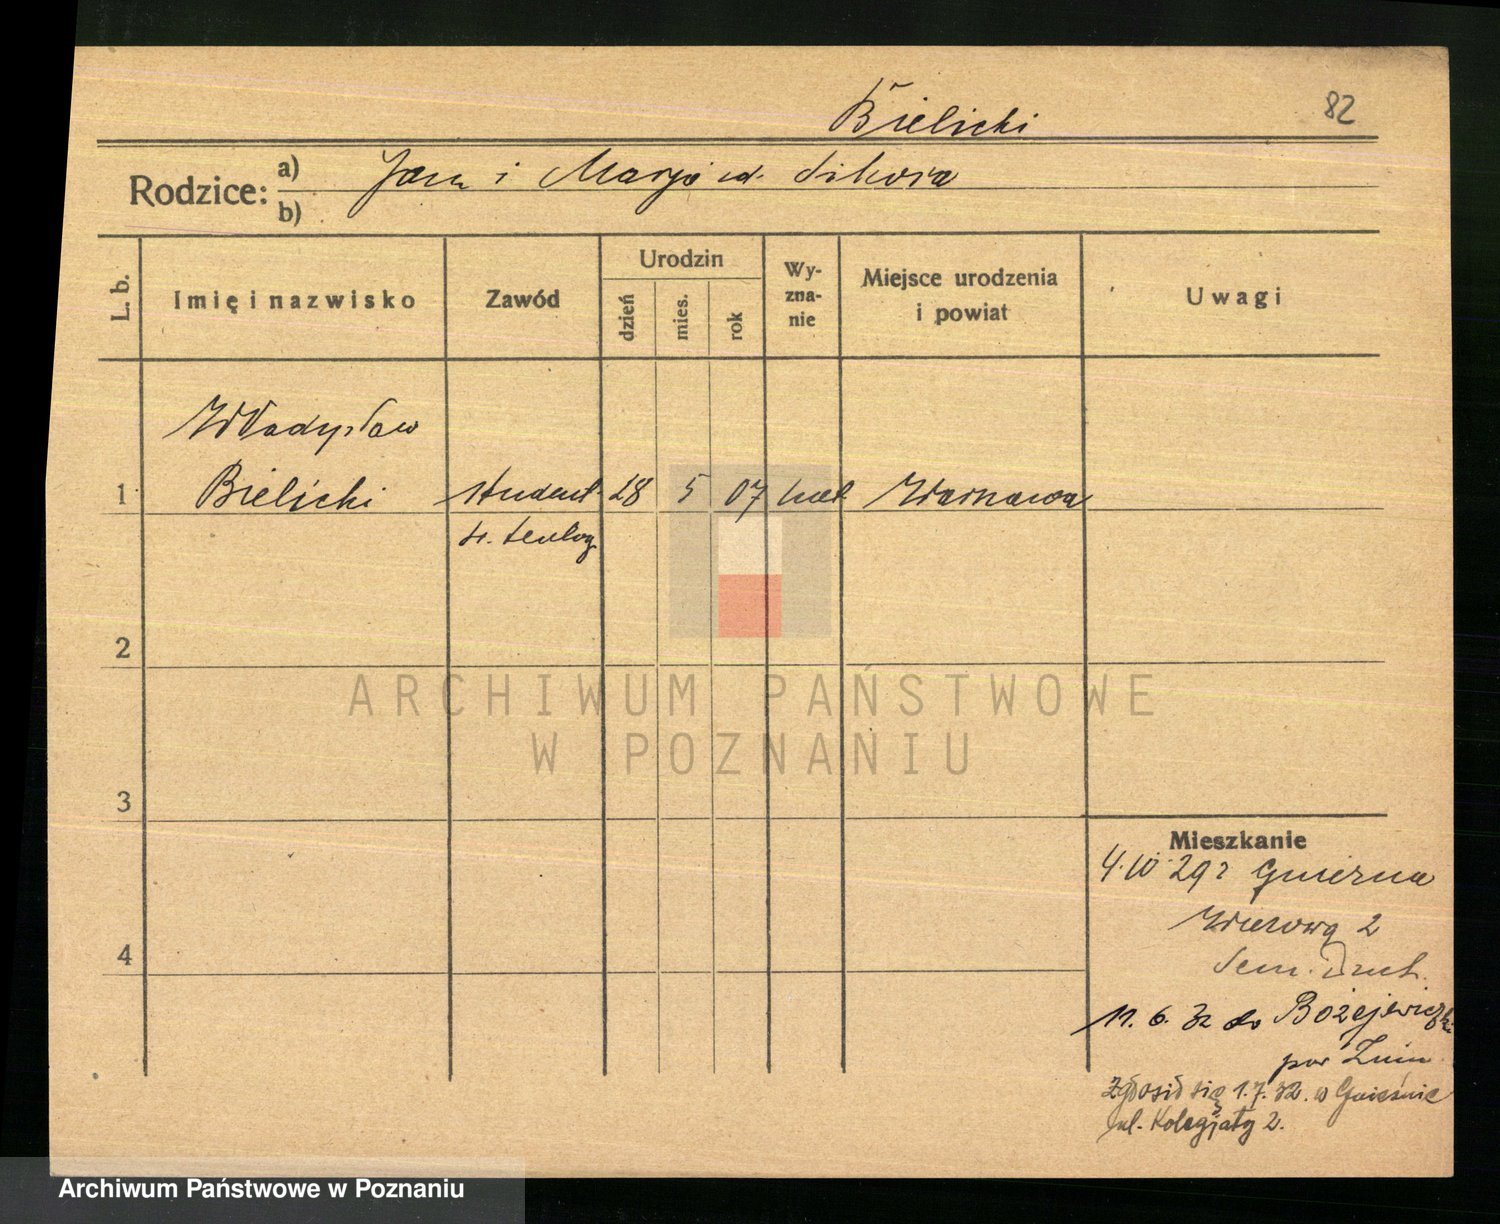 Bielicki
82
Rodzice: a) Jan i Marja ud. Sikora
b)
L. b.
Imię i nazwisko
Zawód
Urodzin
dzień
mies.
rok
Wy-
zna-
nie
Miejsce urodzenia
i powiat
Uwagi
Władysław
1 Bielicki student 28 5 07 kat Warszawa
teolog
2
3
4
Mieszkanie
4.10 29 r Gniezna
Wieżowa 2
Sem. Duch.
11. 6. 32 do Bożejewiczki
pow Żnin
Zgłosił się 1.7.32. w Gnieźnie
ul. Kolegjaty 2.
ARCHIWUM PAŃSTWOWE
W POZNANIU
Archiwum Państwowe w Poznaniu